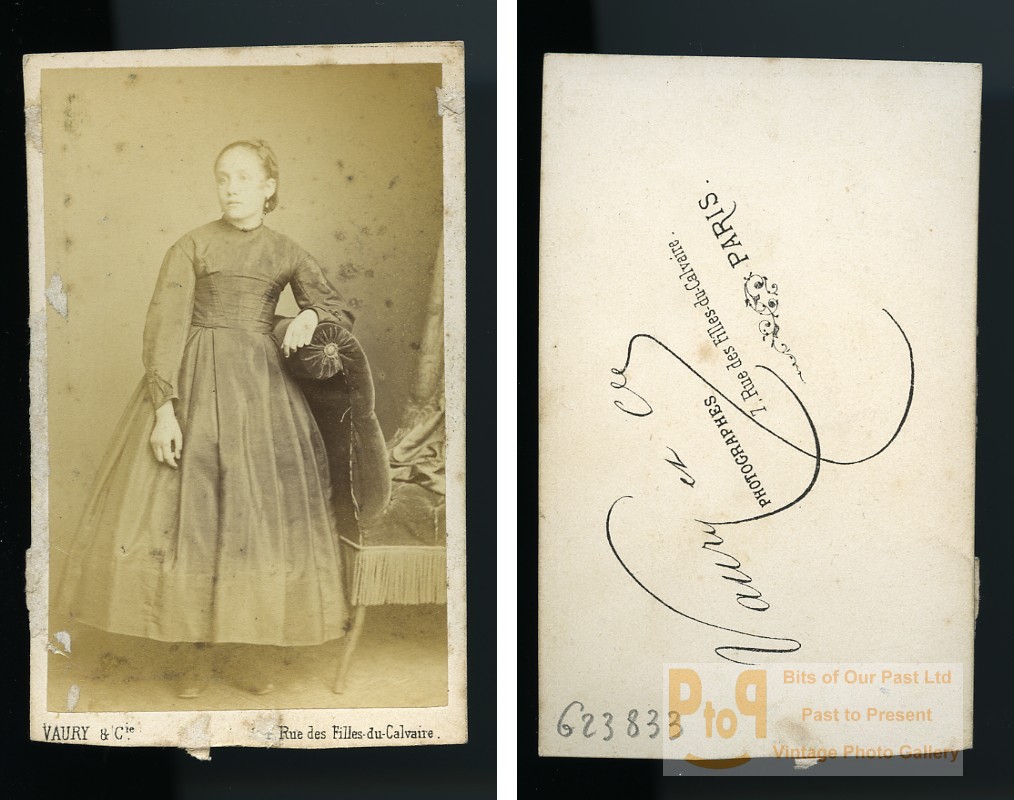 VAURY & Cie
Rue des Filles-du-Calvaire.
Vaury et Cie
PHOTOGRAPHES
7, Rue des Filles-du-Calvaire.
PARIS.
623833
PtoP
Bits of Our Past Ltd
Past to Present
Vintage Photo Gallery